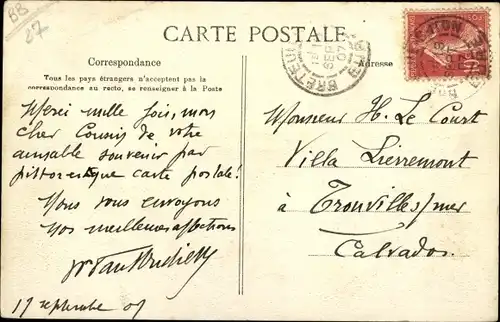 BB
27
CARTE POSTALE
Correspondance
Adresse
Tous les pays étrangers n'acceptent pas la
correspondance au recto, se renseigner à la Poste
Merci mille fois, mon
cher Cousin de votre
aimable souvenir par
pittoresque carte postale!
Nous vous envoyons
nos meilleures affections
17 septembre 07
Monsieur H. Le Court
Villa Lievremont
à Trouville s/mer
Calvados.
BRETEUIL
SEPT
07